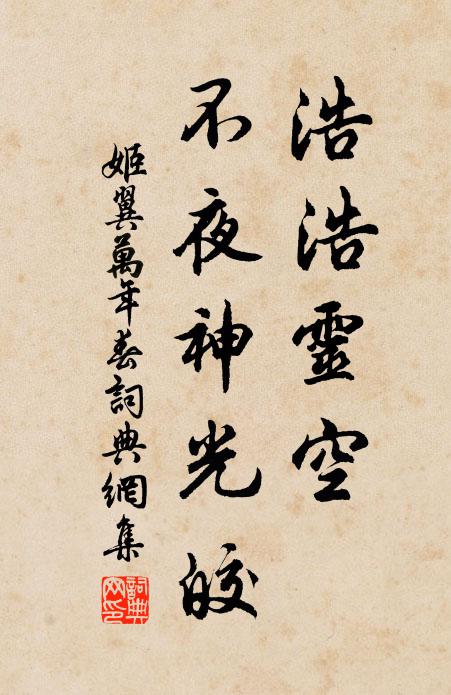 浩浩靈空
不夜神光皎
姬翼萬年春詞典網集
詞典網印